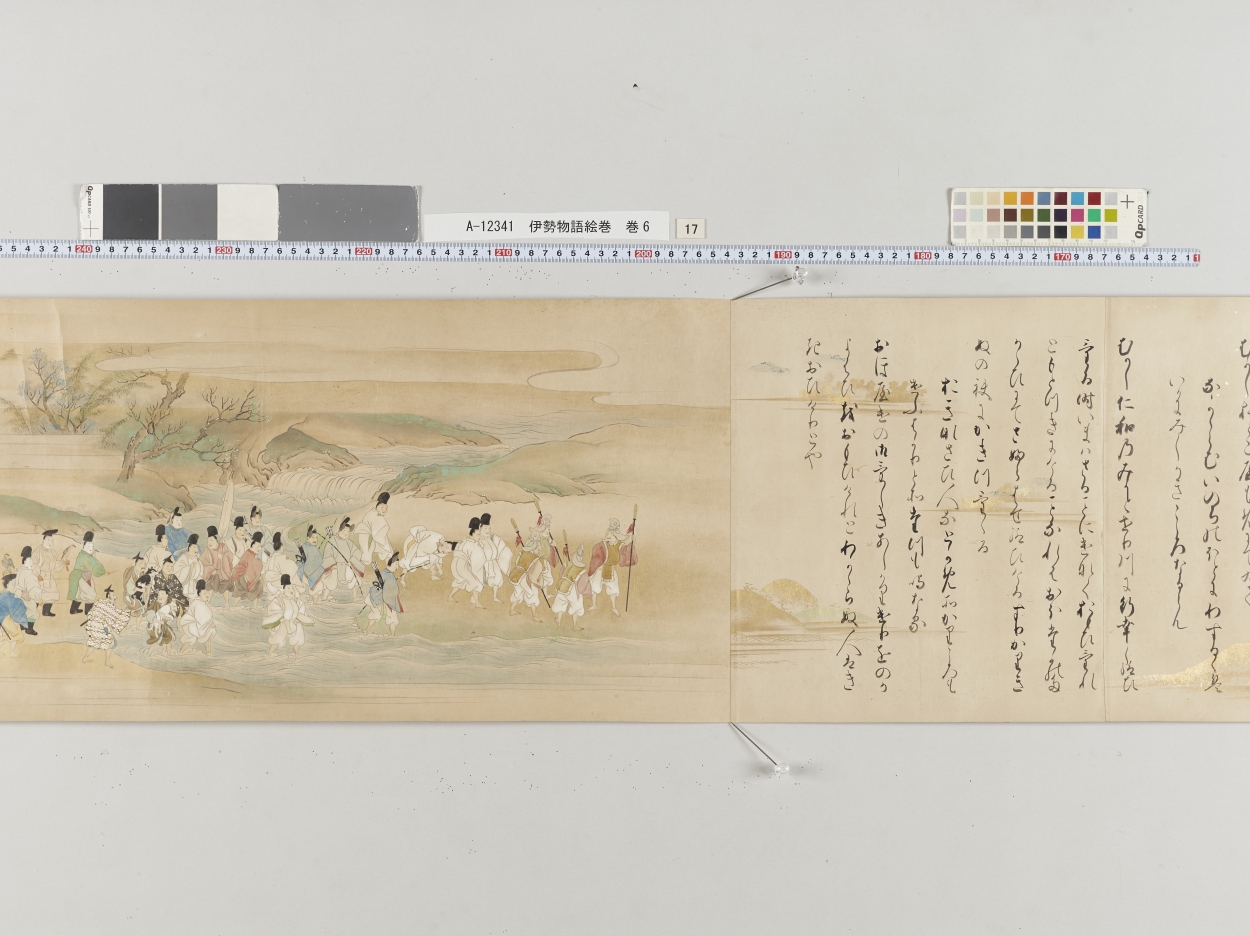 A-12341 伊勢物語絵巻 巻6
17
QpCARD
なからぬいのちのほとにわするゝは
いかにみしかきこゝろなるらん
むかし仁和のみかとせり川に行幸し給ひ
ける時いまはさることにけなく思ひけれ
とももとつきにけることなれはおほたかのた
かゝひにてさふらはせ給ひけるすりかりき
ぬの袂にかきつけゝる
おきなさひ人なとかめそかりころも
けふはかりとそたつも鳴なる
おほやけの御けしきあしかりけりをのか
よはひをおもひけれとわかゝらぬ人はき
きおひけりとや